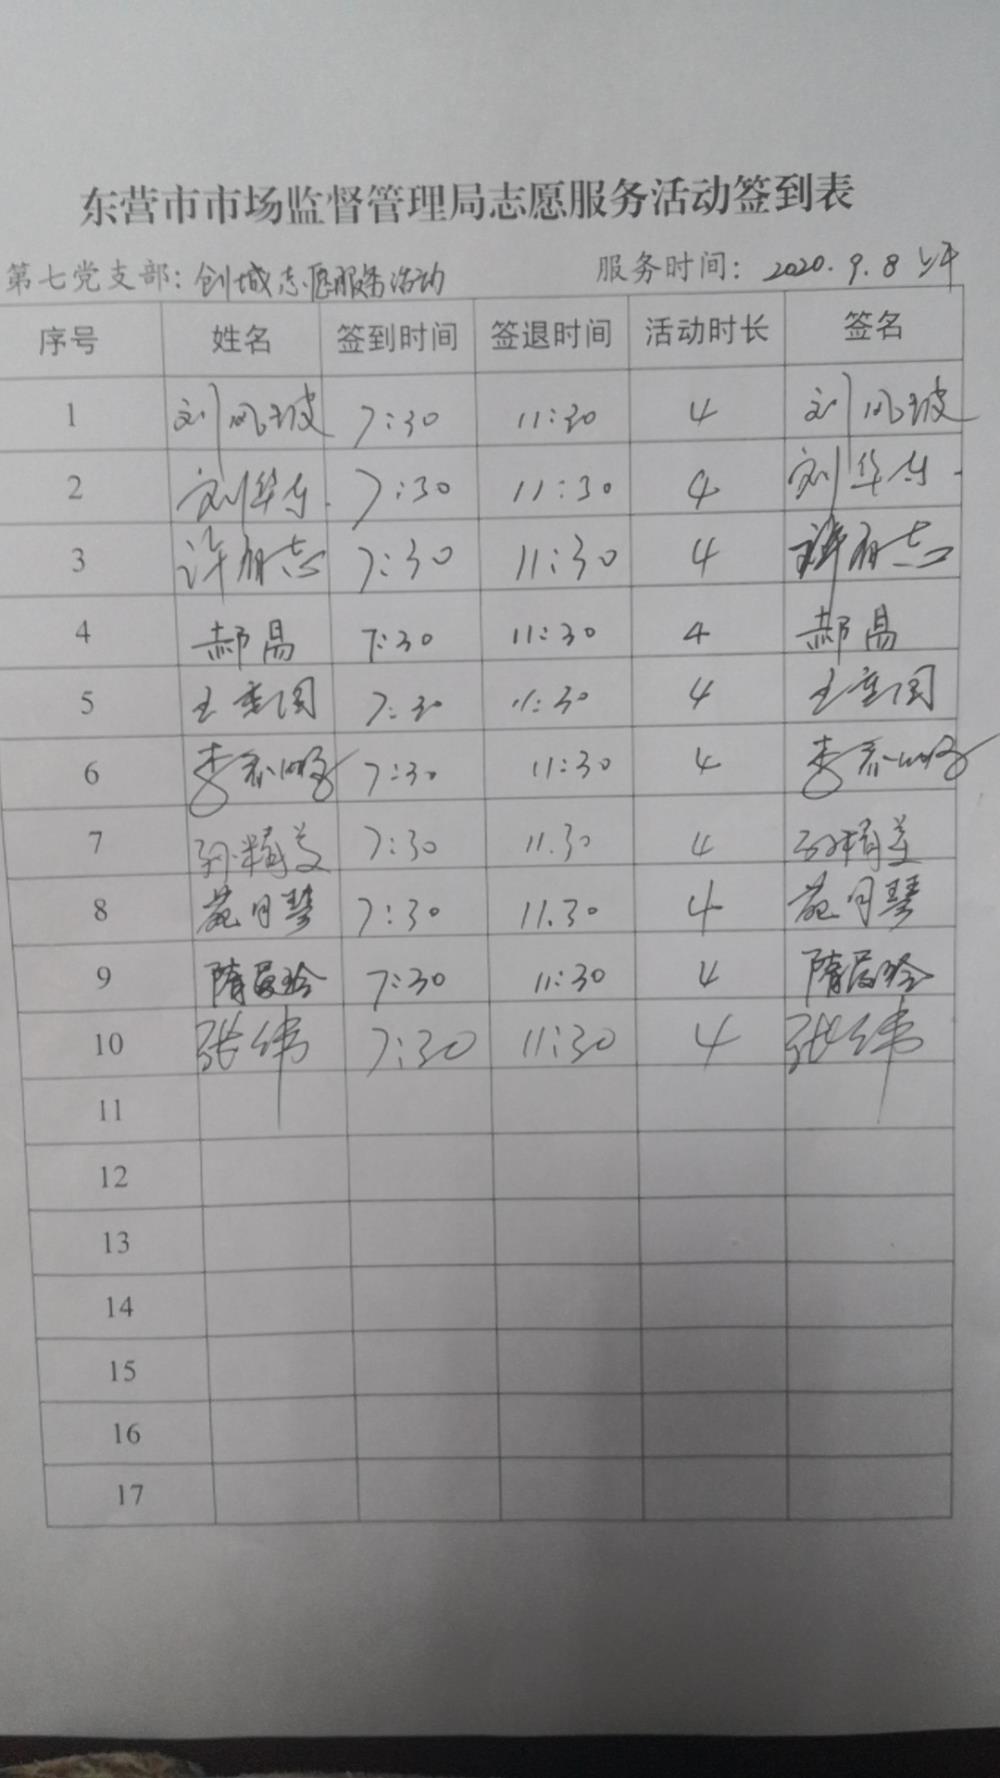 东营市市场监督管理局志愿服务活动签到表
第七党支部：创城志愿服务活动 服务时间：2020.9.8 上午
序号 姓名 签到时间 签退时间 活动时长 签名
1 刘风玻 7:30 11:30 4 刘风玻
2 刘华东 7:30 11:30 4 刘华东
3 许有志 7:30 11:30 4 许有志
4 郝昌 7:30 11:30 4 郝昌
5 王 7:30 11:30 4 王
6 李 7:30 11:30 4 李
7 孙精美 7:30 11.30 4 孙精美
8 苑月琴 7:30 11.30 4 苑月琴
9 隋 7:30 11:30 4 隋
10 张伟 7:30 11:30 4 张伟
11
12
13
14
15
16
17